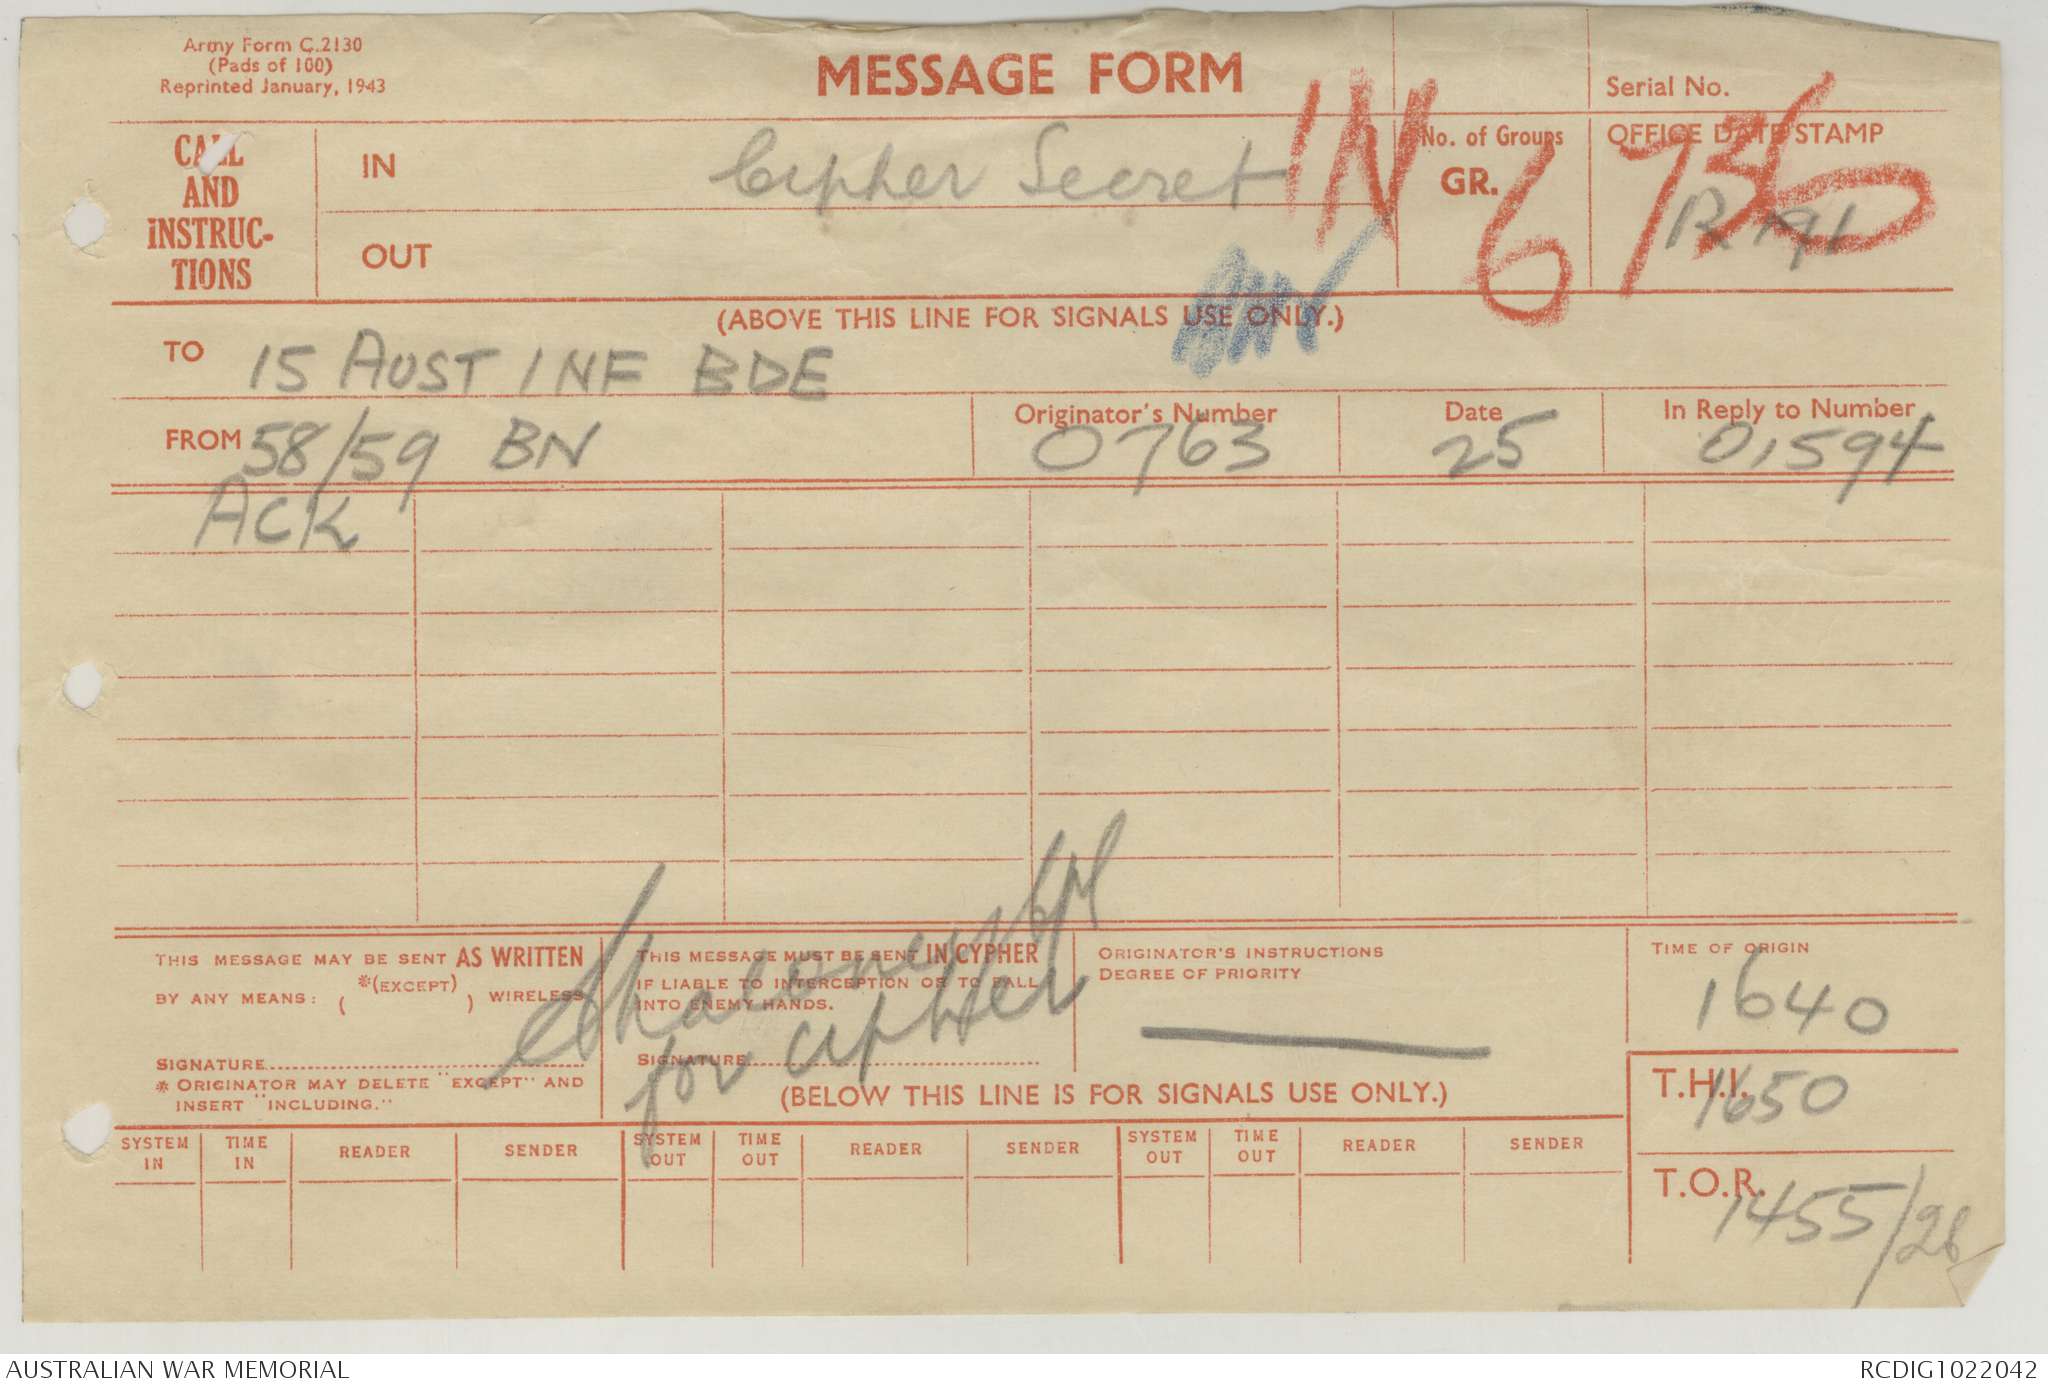 Army Form C.2130
(Pads of 100)
Reprinted January, 1943
MESSAGE FORM
Serial No.
CALL AND INSTRUC-TIONS
IN
Cipher Secret
IN
No. of Groups
GR.
6
OFFICE DATE STAMP
OUT
(ABOVE THIS LINE FOR SIGNALS USE ONLY.)
TO 15 AUST INF BDE
FROM 58/59 BN
Originator's Number
0763
Date
25
In Reply to Number
01594
ACK
THIS MESSAGE MAY BE SENT AS WRITTEN
BY ANY MEANS: ( *(EXCEPT) ) WIRELESS
SIGNATURE
* ORIGINATOR MAY DELETE "EXCEPT" AND
INSERT "INCLUDING."
THIS MESSAGE MUST BE SENT IN CYPHER
IF LIABLE TO INTERCEPTION OR TO FALL
INTO ENEMY HANDS.
SIGNATURE
for cipher
ORIGINATOR'S INSTRUCTIONS
DEGREE OF PRIORITY
TIME OF ORIGIN
1640
(BELOW THIS LINE IS FOR SIGNALS USE ONLY.)
T.H.I. 1650
T.O.R. 1455/26
SYSTEM IN
TIME IN
READER
SENDER
SYSTEM OUT
TIME OUT
READER
SENDER
SYSTEM OUT
TIME OUT
READER
SENDER
AUSTRALIAN WAR MEMORIAL
RCDIG1022042